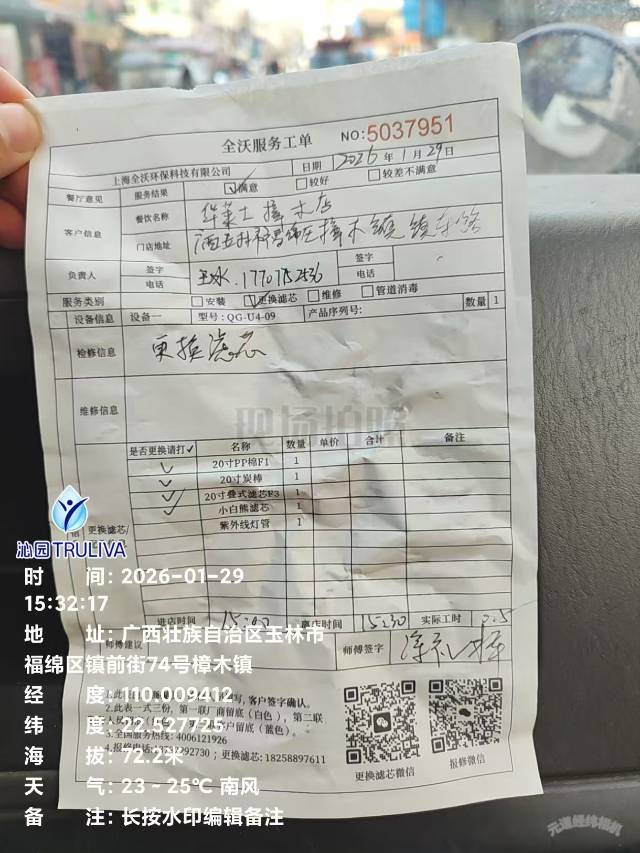 全沃服务工单
NO:5037951
上海全沃环保科技有限公司
日期 2026年1月29日
餐厅意见 服务结果 ☑满意 □较好 □较差不满意
客户信息 餐饮名称 华莱士樟木店
门店地址 樟木镇镇
负责人 签字 电话 签字 电话
服务类别 □安装 ☑更换滤芯 □维修 □管道消毒
设备信息 设备一 型号:QG-U4-09 产品序列号: 数量 1
检修信息 更换滤芯
维修信息
现场拍照
是否更换请打✓ 名称 数量 单价 合计 备注
✓ 20寸PP棉F1 1
✓ 20寸炭棒 1
✓ 20寸叠式滤芯F3 1
✓ 小白熊滤芯 1
紫外线灯管 1
更换滤芯/
进店时间 15:00 离店时间 15:30 实际工时 0.5
师傅建议 师傅签字
写,客户签字确认。
2.此表一式三份,第一联厂商留底(白色),第二联
户留底(蓝色)。
3.全国服务热线:4006121926
4.报修电话: 92730;更换滤芯:18258897611
更换滤芯微信
报修微信
沁园TRULIVA
时 间:2026-01-29
15:32:17
地 址:广西壮族自治区玉林市
福绵区镇前街74号樟木镇
经 度:110.009412
纬 度:22.527725
海 拔:72.2米
天 气:23~25℃ 南风
备 注:长按水印编辑备注
元道经纬相机